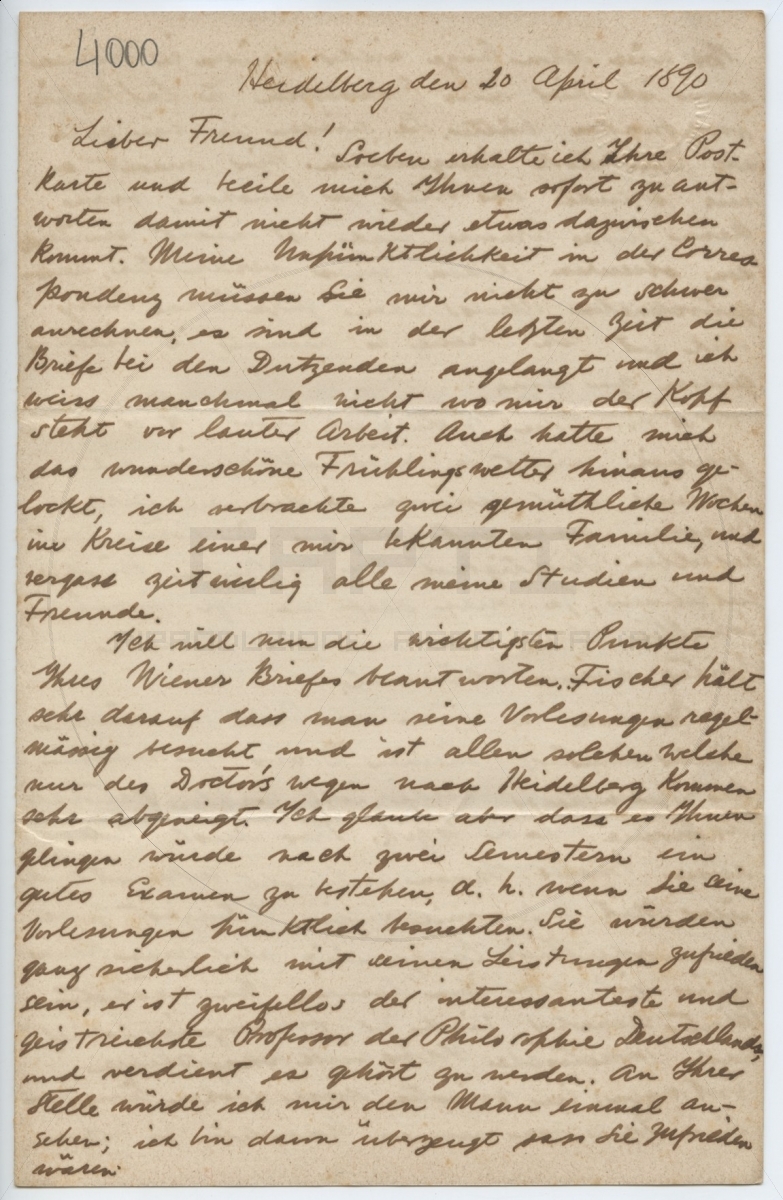 4000
Heidelberg den 20 April 1890
Lieber Freund!
Soeben erhalte ich Ihre Post-
karte und beeile mich Ihnen sofort zu ant-
worten damit nicht wieder etwas dazwischen
kommt. Meine Unpünktlichkeit in der Corres
pondenz müssen Sie mir nicht zu schwer
anrechnen, es sind in der letzten Zeit die
Briefe bei den Dutzenden angelangt und ich
weiss manchmal nicht wo mir der Kopf
steht vor lauter Arbeit. Auch hatte mich
das wunderschöne Frühlingswetter hinaus ge-
lockt, ich verbrachte zwei gemüthliche Wochen
im Kreise einer mir bekannten Familie, und
vergass zeitweilig alle meine Studien und
Freunde.
Ich will nun die wichtigsten Punkte
Ihres Wiener Briefes beantworten. Fischer hält
sehr darauf dass man seine Vorlesungen regel-
mässig besucht und ist allen solchen welche
nur des Doctor's wegen nach Heidelberg kommen
sehr abgeneigt. Ich glaube aber dass es Ihnen
gelingen würde nach zwei Semestern ein
gutes Examen zu bestehen, d. h. wenn Sie seine
Vorlesungen pünktlich besuchten. Sie würden
ganz sicherlich mit seinen Leistungen zufrieden
sein, er ist zweifellos der interessanteste und
geistreichste Professor der Philosophie Deutschlands,
und verdient es gehört zu werden. An Ihrer
Stelle würde ich mir den Mann einmal an-
sehen; ich bin dann überzeugt dass Sie zufrieden
wären.